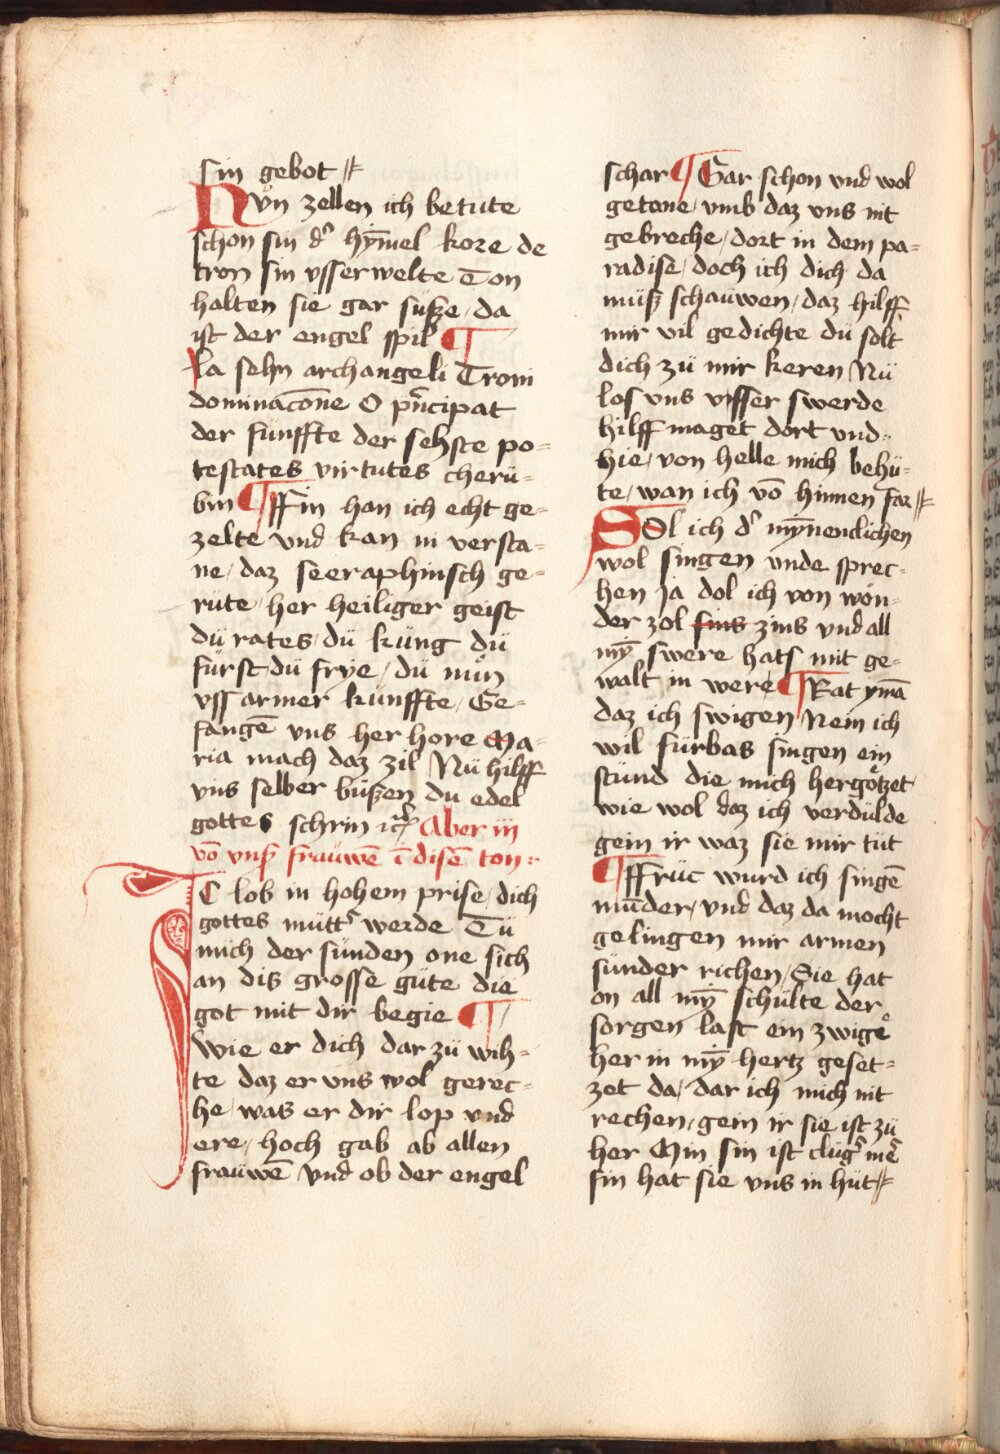 sin gebot //
Nün zellen ich betute
schon sin d' hym̄el kore de
tron sin vsserwelte Ton
halten sie gar sußze / da
ist der engel spil ¶
la sehn archangeli Troni
dominac̄one O pn̄cipat
der funffte der sehste po=
testates virtutes cherü=
bin ¶ Ffin han ich echt ge=
zelte vnd kan in versta=
ne / daz seeraphinsch ge=
rüte / her heiliger geist
dü rates / dü küng dü
fürst dü frye / dü nuͦn
vss armer kunffte / Ge=
fangē vns her hore Ma=
ria mach daz zil Nü hilff
vns selber büßzen du edel
gottes schrin ic̄ Aber iij
vō vnſ frauwē ī disē ton :
IC lob in hohem prise / dich
gottes mütt' werde Tü
mich der sünden one sich
an dis grosse güte die
got mit dir begie ¶
Wie er dich dar zü wih=
te daz er vns wol gerec=
he / was er dir lop vnd
ere / hoch gab ab allen
frauwē vnd ob der engel
schar ¶ Gar schon vnd wol
getane / vmb daz vns nit
gebreche / dort in dem pa=
radise / doch ich dich da
müß schauwen / daz hilff
mir vil gedichte dü solt
dich zü mir keren Nü
los vns vsser swerde
hilff maget dort vnd=
hie / von helle mich behü=
te / wan ich vō hinnen far //
SOl ich d' myn̄endlichen
wol singen vnde sprec=
hen ja dol ich von wön=
der zol sins zins vnd all
mȳ swere hats mit ge=
walt in were ¶ Rat ymā
daz ich swigen Nein ich
wil fürbas singen ein
stünd die mich hergoͤtzet
wie wol daz ich verdülde
gein ir waz sie mir tüt
¶ Ffrüc wurd ich singē
mūder / vnd daz da mocht
gelingen mir armen
sünder richen / Sie hat
on all mȳ schülte der
sorgen last ein zwige
her in mȳ hertz geset=
zet da / dar ich mich nit
rechen / gein ir sie ist zü
her Min sin ist clüg' mē
sin hat sie vns in hüt //